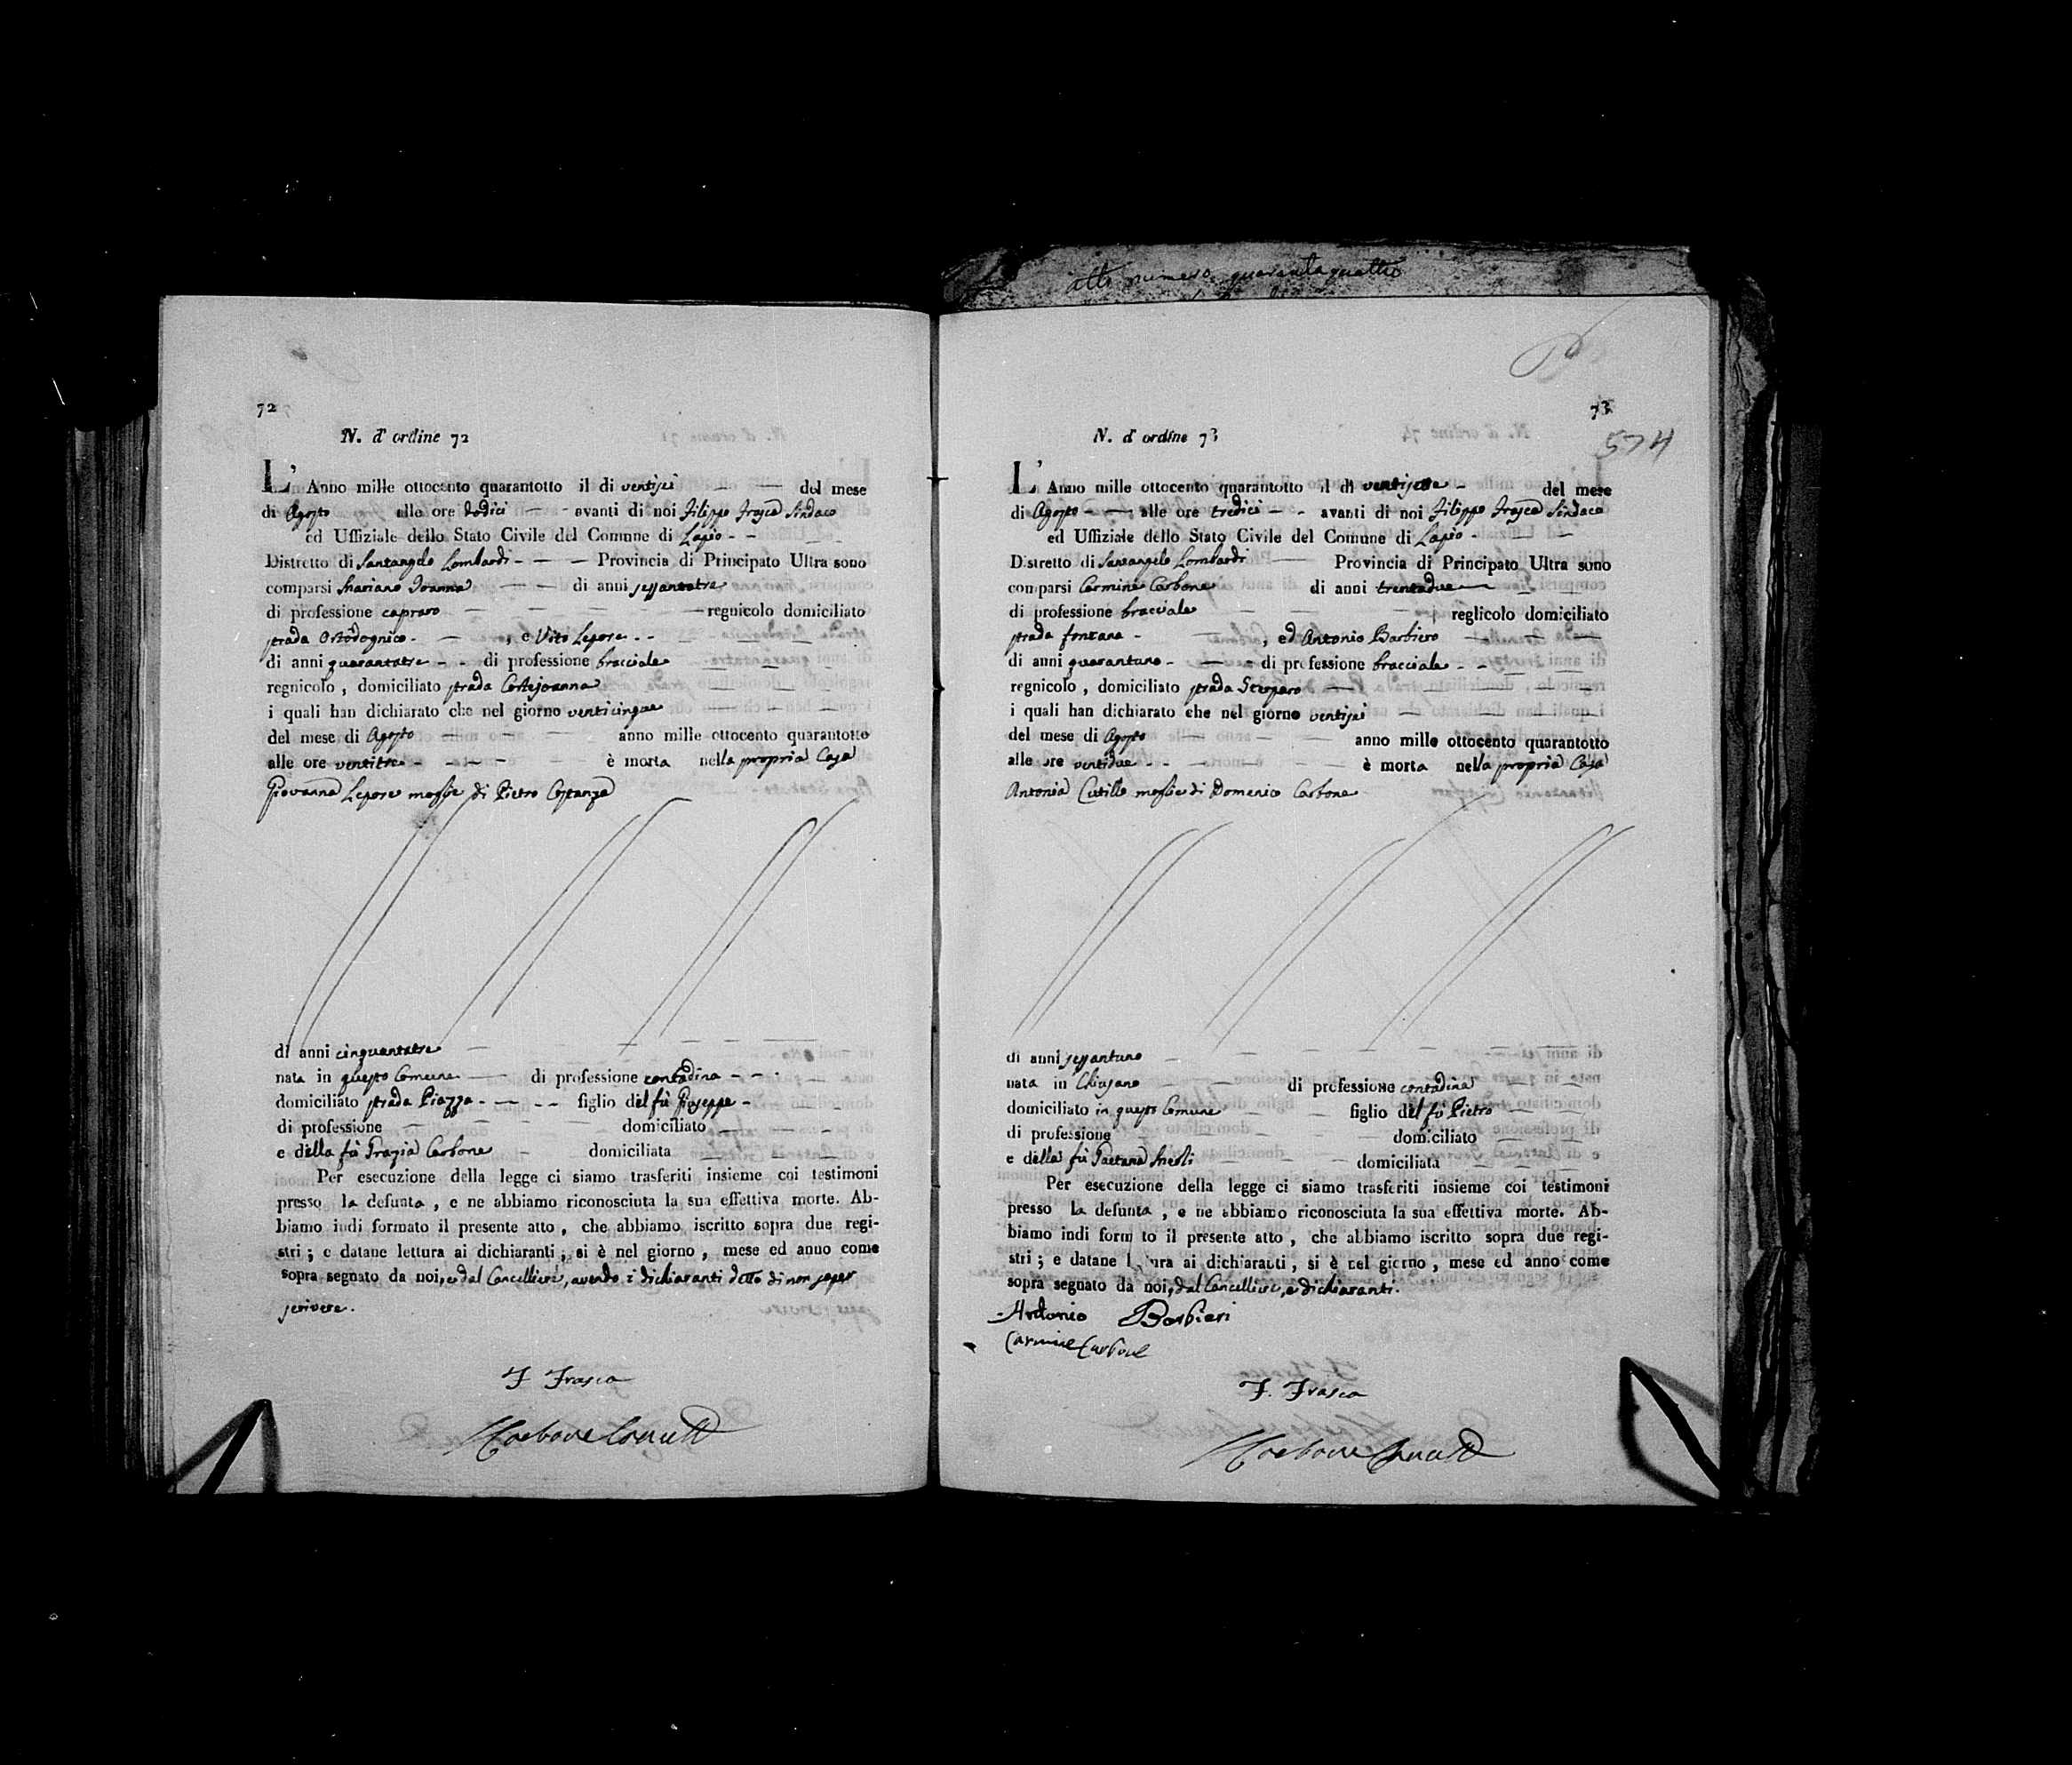 atto numero quarantaquattro
72
N. d' ordine 72
L' Anno mille ottocento quarantotto il di ventisei del mese
di Agosto alle ore dodici avanti di noi Filippo Frasca Sindaco
ed Uffiziale dello Stato Civile del Comune di Lapio
Distretto di Santangelo Lombardi Provincia di Principato Ultra sono
comparsi Mariano Joanna di anni sessantatre
di professione capraro regnicolo domiciliato
strada Ortodognico , e Vito Lepore
di anni quarantatre di professione bracciale
regnicolo , domiciliato strada Cortejoanna
i quali han dichiarato che nel giorno venticinque
del mese di Agosto anno mille ottocento quarantotto
alle ore ventitre è morta nella propria Casa
Giovanna Lepore moglie di Pietro Costanza
di anni cinquantatre
nata in questo Comune di professione contadina
domiciliato strada Piazza figlio del fù Giuseppe
di professione domiciliato
e della fù Grazia Carbone domiciliata
Per esecuzione della legge ci siamo trasferiti insieme coi testimoni
presso la defunta , e ne abbiamo riconosciuta la sua effettiva morte. Ab-
biamo indi formato il presente atto , che abbiamo iscritto sopra due regi-
stri ; e datane lettura ai dichiaranti , si è nel giorno , mese ed anno come
sopra segnato da noi, e dal Cancelliere, avendo i dichiaranti detto di non saper
scrivere.
F Frasca
73
574
N. d' ordine 73
L' Anno mille ottocento quarantotto il di ventisette del mese
di Agosto alle ore tredici avanti di noi Filippo Frasca Sindaco
ed Uffiziale dello Stato Civile del Comune di Lapio
Distretto di Santangelo Lombardi Provincia di Principato Ultra sono
comparsi Carmine Carbone di anni trentadue
di professione bracciale reglicolo domiciliato
strada fontana , ed Antonio Barbiero
di anni quarantuno di professione bracciale
regnicolo , domiciliato strada Scoparo
i quali han dichiarato che nel giorno ventisei
del mese di Agosto anno mille ottocento quarantotto
alle ore ventidue è morta nella propria Casa
Antonia Cutillo moglie di Domenico Carbone
di anni sessantuno
nata in Chiusano di professione contadina
domiciliato in questo Comune figlio del fù Pietro
di professione domiciliato
e della fù Gaetana domiciliata
Per esecuzione della legge ci siamo trasferiti insieme coi testimoni
presso la defunta , e ne abbiamo riconosciuta la sua effettiva morte. Ab-
biamo indi form to il presente atto , che abbiamo iscritto sopra due regi-
stri ; e datane l ura ai dichiaranti , si è nel giorno , mese ed anno come
sopra segnato da noi, dal Cancelliere, e dichiaranti.
Antonio Barbieri
Carmine Carbone
F. Frasca